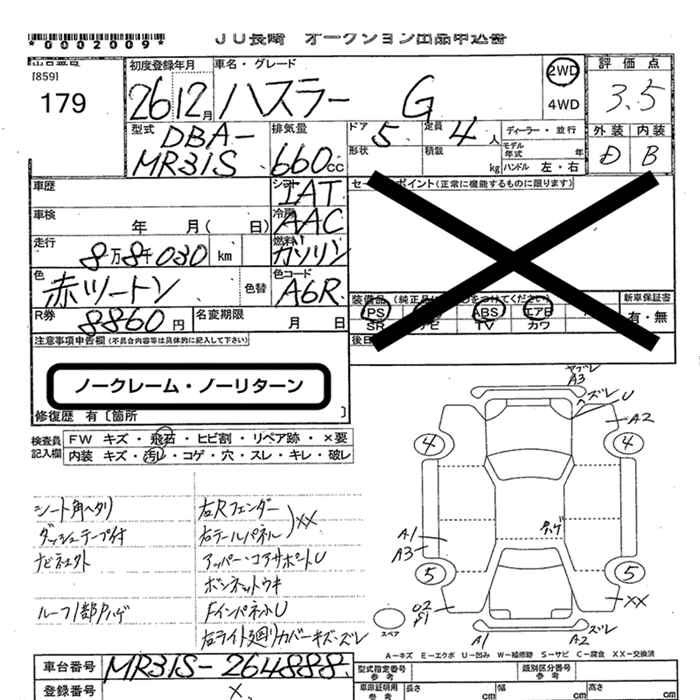 *0002009*
JU長崎 オークション出品申込書
[859]
179
初度登録年月
26 12月
車名・グレード
ハスラー G
2WD
4WD
評価点
3.5
外装 内装
D B
型式
DBA-
MR31S
排気量
660cc
ドア 5
定員 4人
形状
積載 kg
ディーラー・並行
モデル年式 年
ハンドル 左・右
車歴
シフト IAT
車検 年 月( 日)
冷房 AAC
走行 8万8千030 km
燃料 ガソリン
色 赤ツートン
色替
色コード A6R
R券 8860円
名変期限 月 日
セールスポイント(正常に機能するものに限ります)
装備品(純正品
PS ABS エアB
SR ナビ TV カワ
新車保証書
有・無
注意事項申告欄(不具合内容等は具体的に記入して下さい)
ノークレーム・ノーリターン
修復歴 有〔箇所 〕
検査員記入欄
FW キズ・飛石・ヒビ割・リペア跡・×要
内装 キズ・汚レ・コゲ・穴・スレ・キレ・破レ
シート角ヘタリ
ダッシュテープ付
ルーフ1部Pハゲ
右Rフェンダー
右テールパネル
XX
アッパー・コアサポートU
ボンネットウキ
FインパネルU
右ライト廻りカバーキズ・ズレ
A3
ズレ
U
A2
4
4
A1
A3
5
5
U2
XX
スペア
A1
A2
ズレ
A-キズ E-エクボ U-凹み W-補修跡 S-サビ C-腐食 XX-交換済
車台番号 MR31S-264888
登録番号 ×
型式指定番号
類別区分番号
車庫証明用
参考
長さ cm
幅 cm
高さ cm